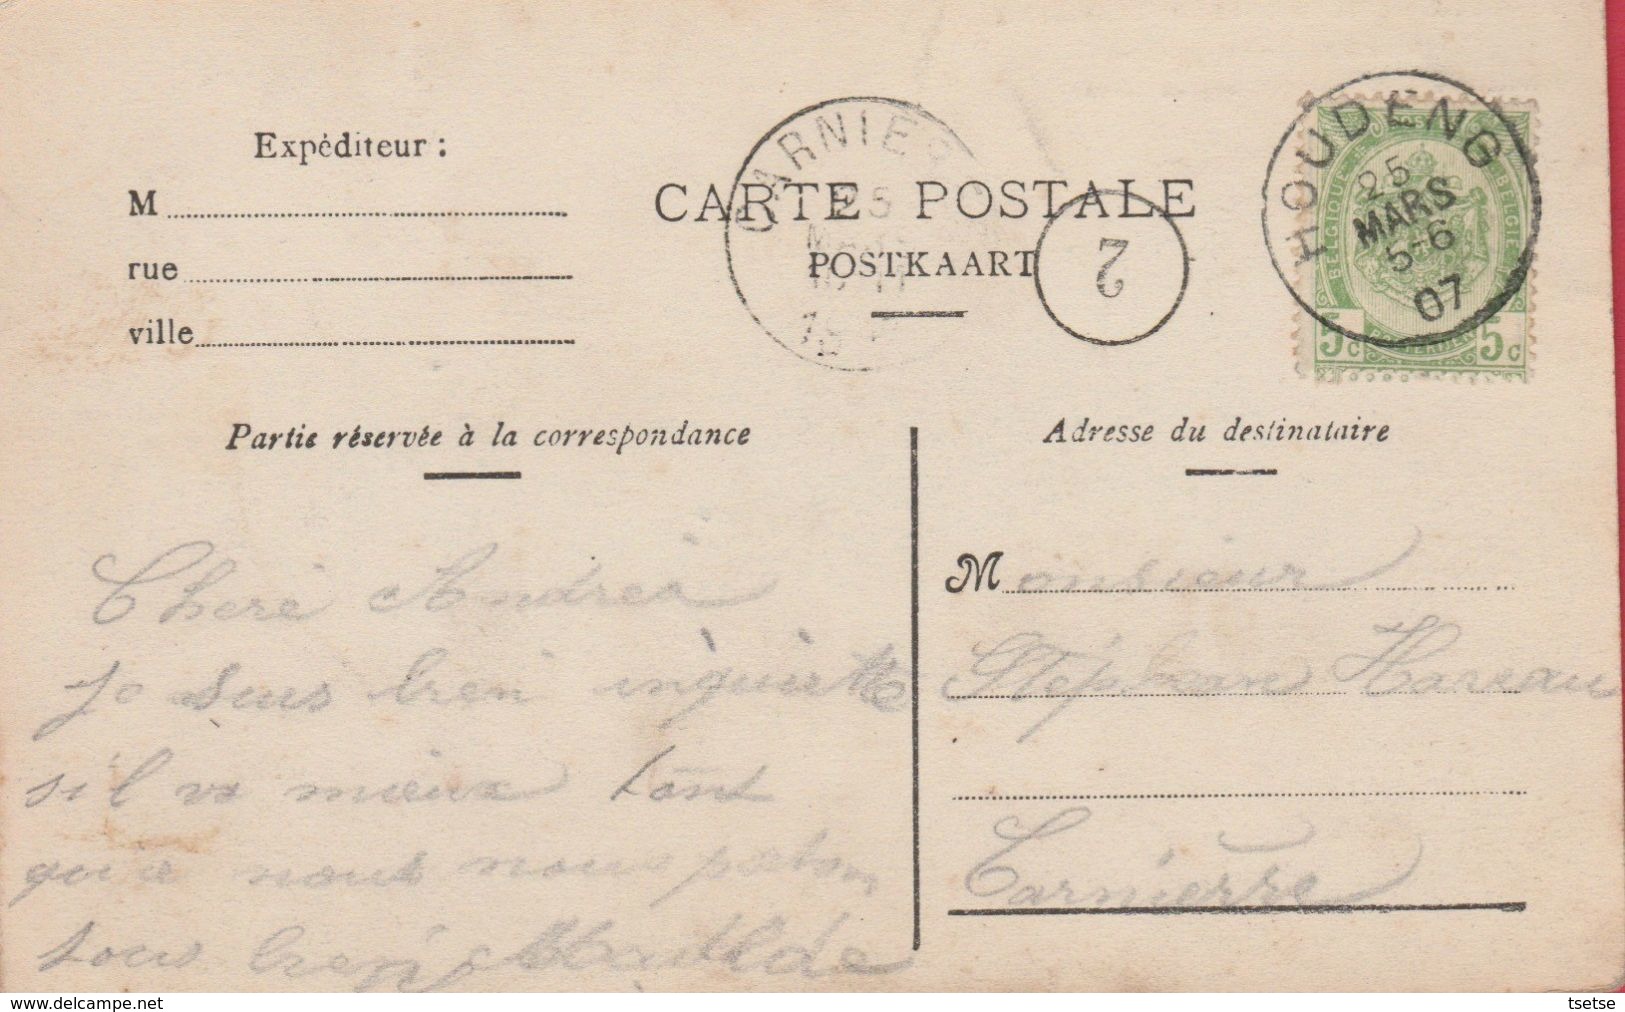 Expéditeur :
M
rue
ville
CARNIÈ
CARTE POSTALE
POSTKAART
2
HOUDENG
25
MARS
5-6
07
BELGIQUE BELGIË
5c 5c
Partie réservée à la correspondance
Adresse du destinataire
Cheré Andréa
je suis bien inquiette
s'il va mieux tant
qu'a nous nous portons
tous bien Mathilde
Monsieur
Stéphan Hareau
Carnierre
www.delcampe.net
tsetse